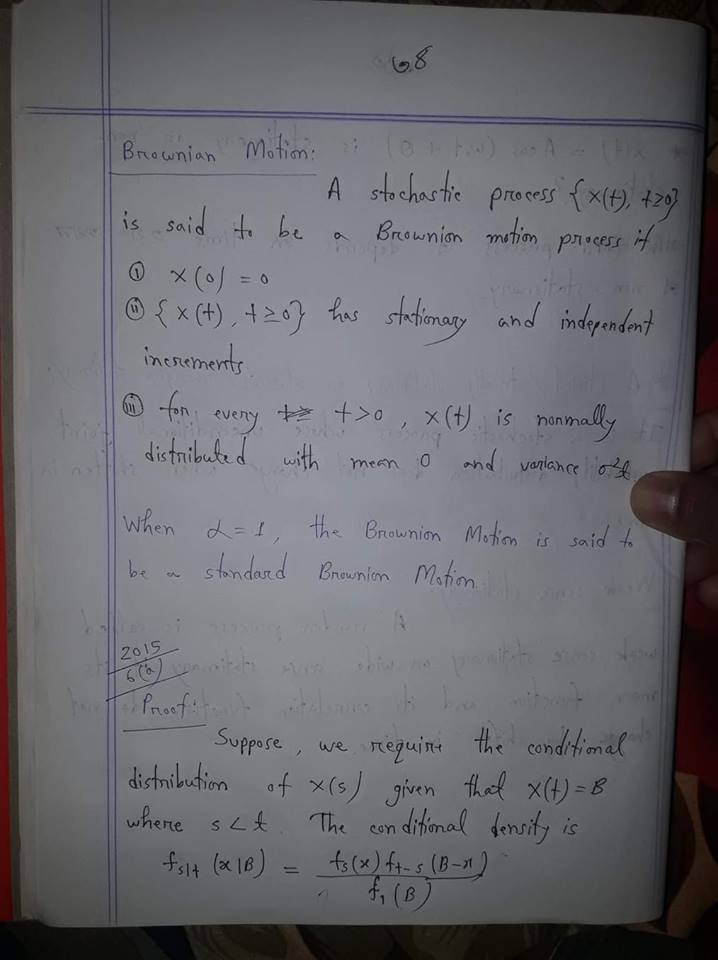 68
Brownian Motion:
A stochastic process {X(t), t≥0}
is said to be a Brownion motion process if
(i) X(0) = 0
(ii) {X(t), t≥0} has stationary and independent
increments
(iii) for every t>0, X(t) is normally
distributed with mean 0 and variance σ²t
When α=1, the Brownion Motion is said to
be a standard Brownion Motion
2015
6(a)
Proof:
Suppose, we require the conditional
distribution of X(s) given that X(t)=B
where s<t. The conditional density is
f_{s|t} (x|B) = f_s(x) f_{t-s} (B-x) / f_t (B)